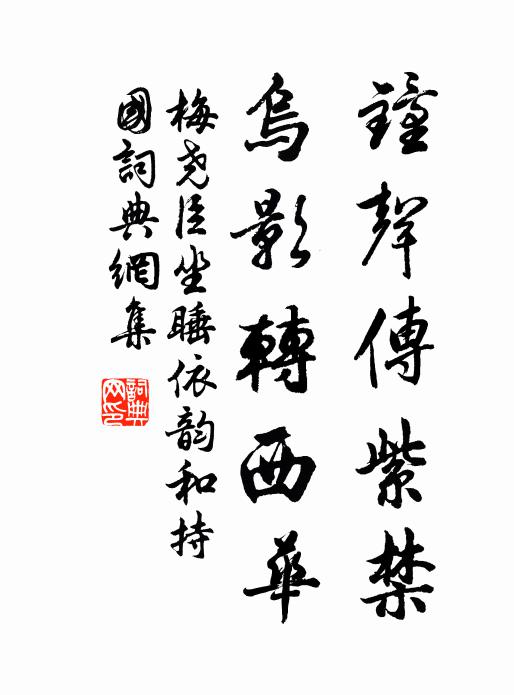 鐘聲傳紫禁
烏影轉西華
梅堯臣坐睡依韵和持
國詞典網集
詞典网印